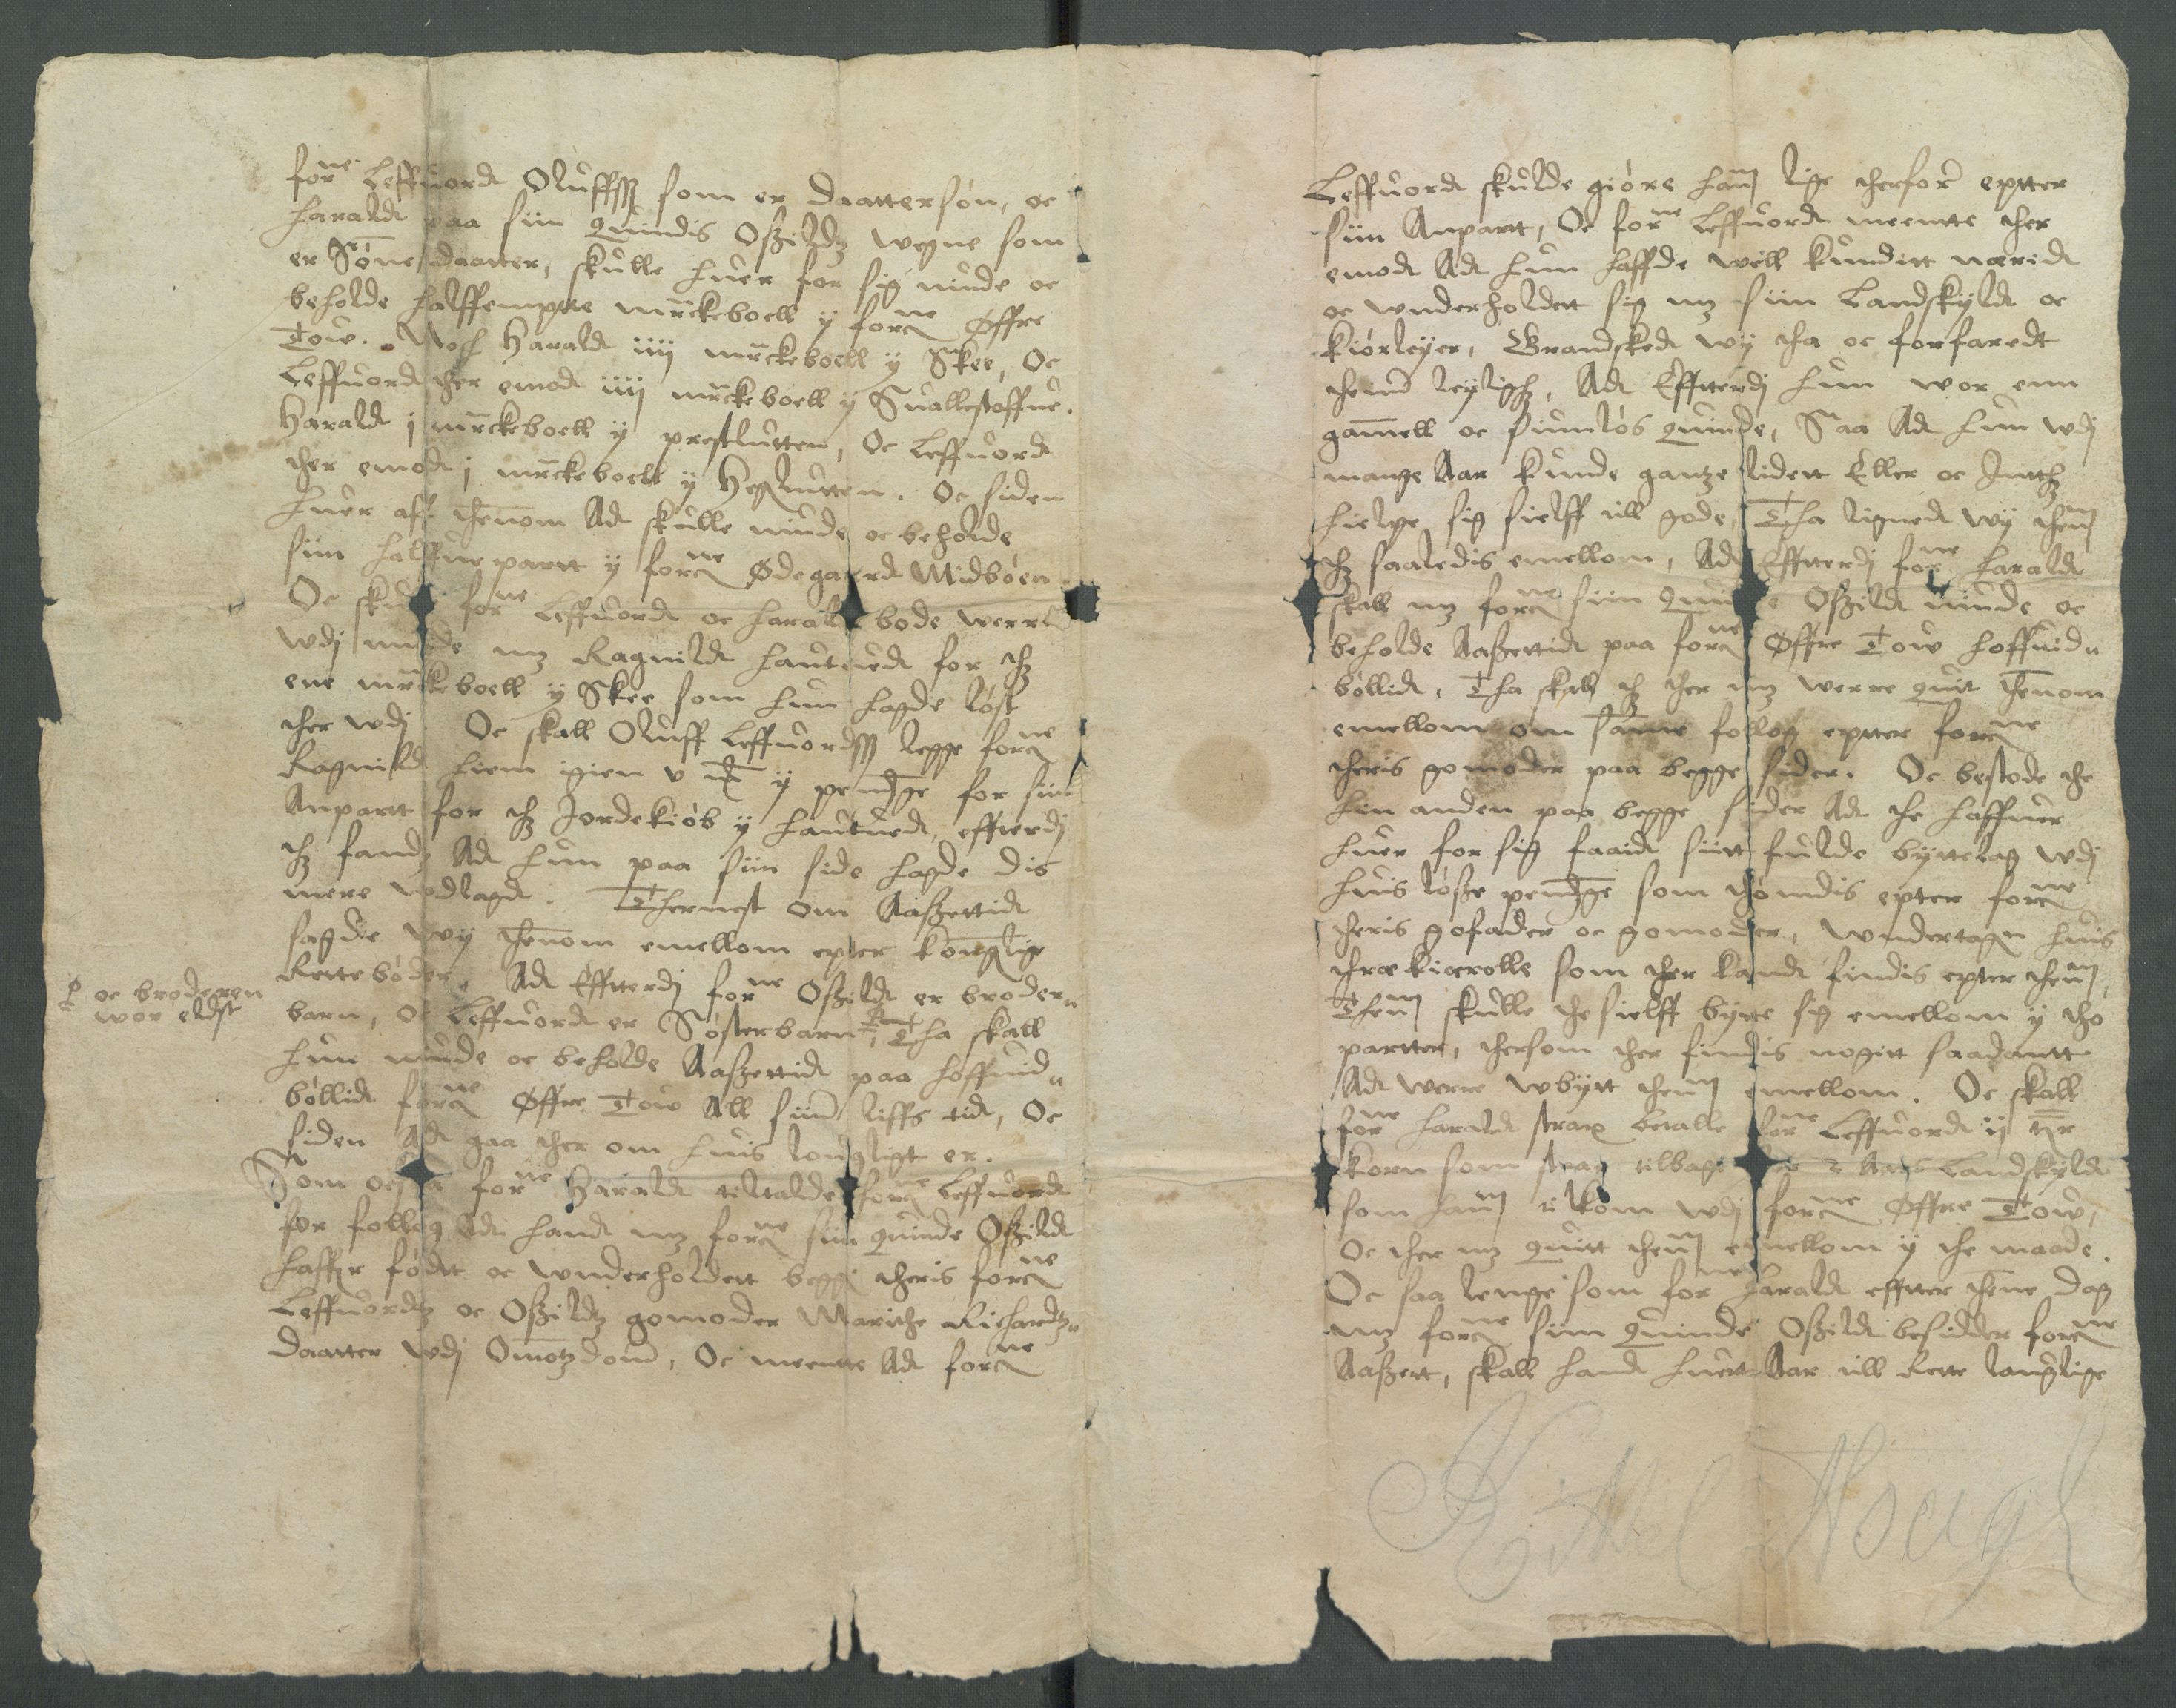 forne Leffuord Oluffssz som er daattersøn, oc
Harald paa siin quindis Oszildz wegne som
er Sønnedaatter, skulle huer for sig niude oc
beholde halffempte mrckeboell y forne Øffre
Tow. Noch Harald iiij mrckeboell y Skee, Oc
Leffuord ther emod iiij mrckeboell y Suallestoffne.
Harald j mrckeboell y prestlutten, Oc Leffuord
ther emod j mrckeboell y Heglutten. Oc siden
huer aff thennom Ad skulle niude oc beholde
siin halffuepartt y forne Ødegaard Midbøen.
Oc skulle forne Leffuord oc Harald bode werre
wdj minde mz Ragnild Hautued for thz
ene mrckeboell y Skee som hun hagde løst
ther wdj. Oc skall Oluff Leffuordssz legge forne
Ragnild hiem igien v dr y pendge for siin
Anpartt for thz Jordekiøb y Hautued, effterdj
thz fandz Ad hun paa siin side hagde dis
mere wdlagd. Thernest om Aaszettid
sagde wy thennom emellom epter konglige
Rettebøder, Ad Effterdj forne Oszild er broder
barn, Oc Leffuord er Søsterbarn, Tha skall
oc broderen
wor eldst
hun niude oc beholde Aaszettid paa hoffuid
bøllid forne Øffre Tow All siin liffs tid, Oc
siden Ad gaa ther om huis lougligt er.
Som ocsaa forne Harald tiltalde forne Leffuord
for follog Ad hand mz forne siin quinde Oszild
haffr fødtt oc wnderholdett begge theris forne
Leffuordz oc Oszildz gomoder Marithe Richardz
daatter wdj Omotzdom, Oc meente Ad forne
Leffuord skulde giøre ham lige therfor eptter
siin Anpartt, Oc forne Leffuord meente ther
emod Ad hun haffde well kunditt nærid
oc wnderholdett sig mz siin Landskyld oc
kiørleyer, Grandsked wy tha oc forfaredt
theim leyligh, Ad Effterdj hun wor enn
gammell oc siunløs quinde, Saa Ad hun wdj
mange Aar kunde gantze lidett Eller oc Intthz
hielpe sig sielff till gode, Tha lignede wy them
thz saaledis emellom, Ad Effterdj forne Harald
skall mz forne siin quinde Oszild niude oc
beholde Aaszettid paa forne Øffre Tow hoffuid
bøllid, Tha skall thz ther mz werre quit thennom
emellom om samme follog eptter forne
theris gomoder paa begge sider. Oc bestode the
hin anden paa begge sider Ad the haffuer
huer for sig faaid siitt fulde byttelag wdj
huis løsze pendge som thømdis epter forne
theris gofader oc gomoder, wndertagen huis
thræ kiærolle som ther kand findis epter them,
Them skulle the sielff bytte sig emellom y tho
partter, thersom ther findis nogitt saadantt
Ad werre wbytt them emellom. Oc skall
forne Harald strax betalle forne Leffuord ij
korn som strax tilbage Aars Landskyld
som ham tilkom wdj forne Øffre Tow,
Oc ther mz quitt them emellom y the maade.
Oc saa lenge som forne Harald effter thenne dag
mz forne siin quinde Oszild besidder forne
Aaszett, skall hand huert Aar till Rette lauglige